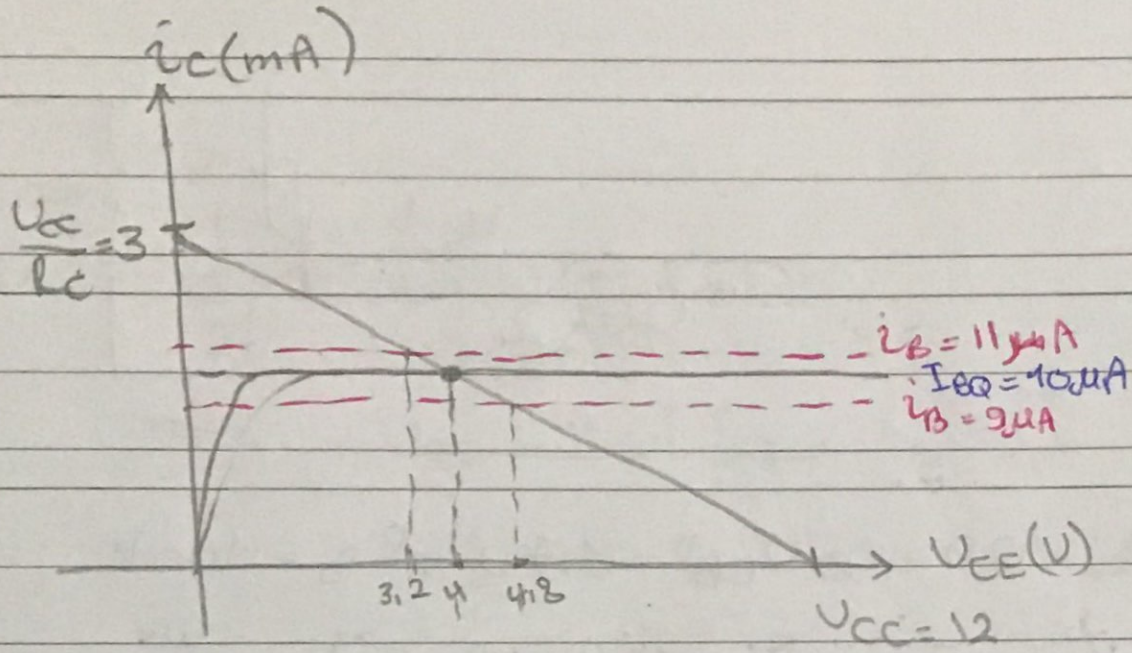 ic(mA)
Ucc/Rc=3
iB = 11μA
IBQ = 10μA
iB = 9μA
3,2 4 4,8
UCE(U)
UCC=12